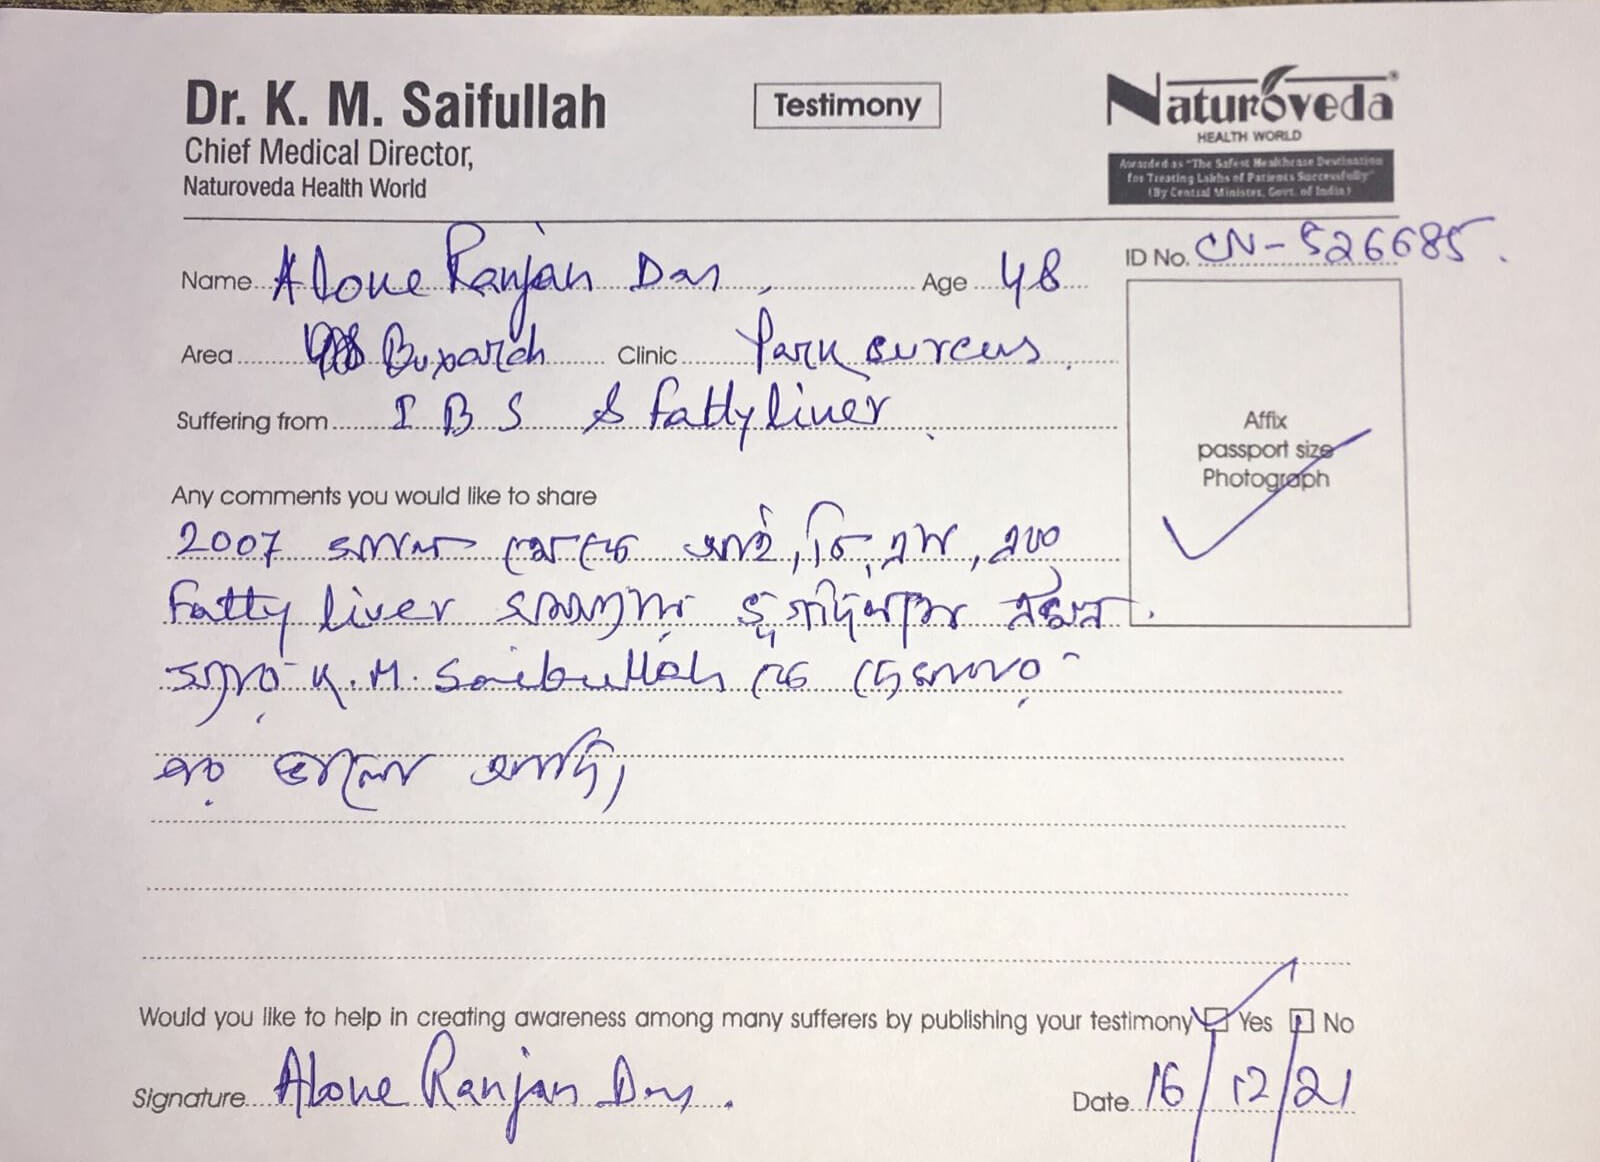 Dr. K. M. Saifullah
Chief Medical Director,
Naturoveda Health World
Testimony
Naturoveda
HEALTH WORLD
Awarded as "The Safest Healthcare Destination
for Treating Lakhs of Patients Successfully"
(By Central Minister, Govt. of India)
ID No. CN-526685.
Name Aloke Ranjan Das, Age 48
Area Clinic Park circus
Suffering from I B S & fatty liver
Affix
passport size
Photograph
Any comments you would like to share
2007 সাল থেকে আই, বি, এস, এবং
Fatty liver
K.M. Saibullah কে
ভালো আছি,
Would you like to help in creating awareness among many sufferers by publishing your testimony Yes No
Signature Aloke Ranjan Das. Date 16/12/21